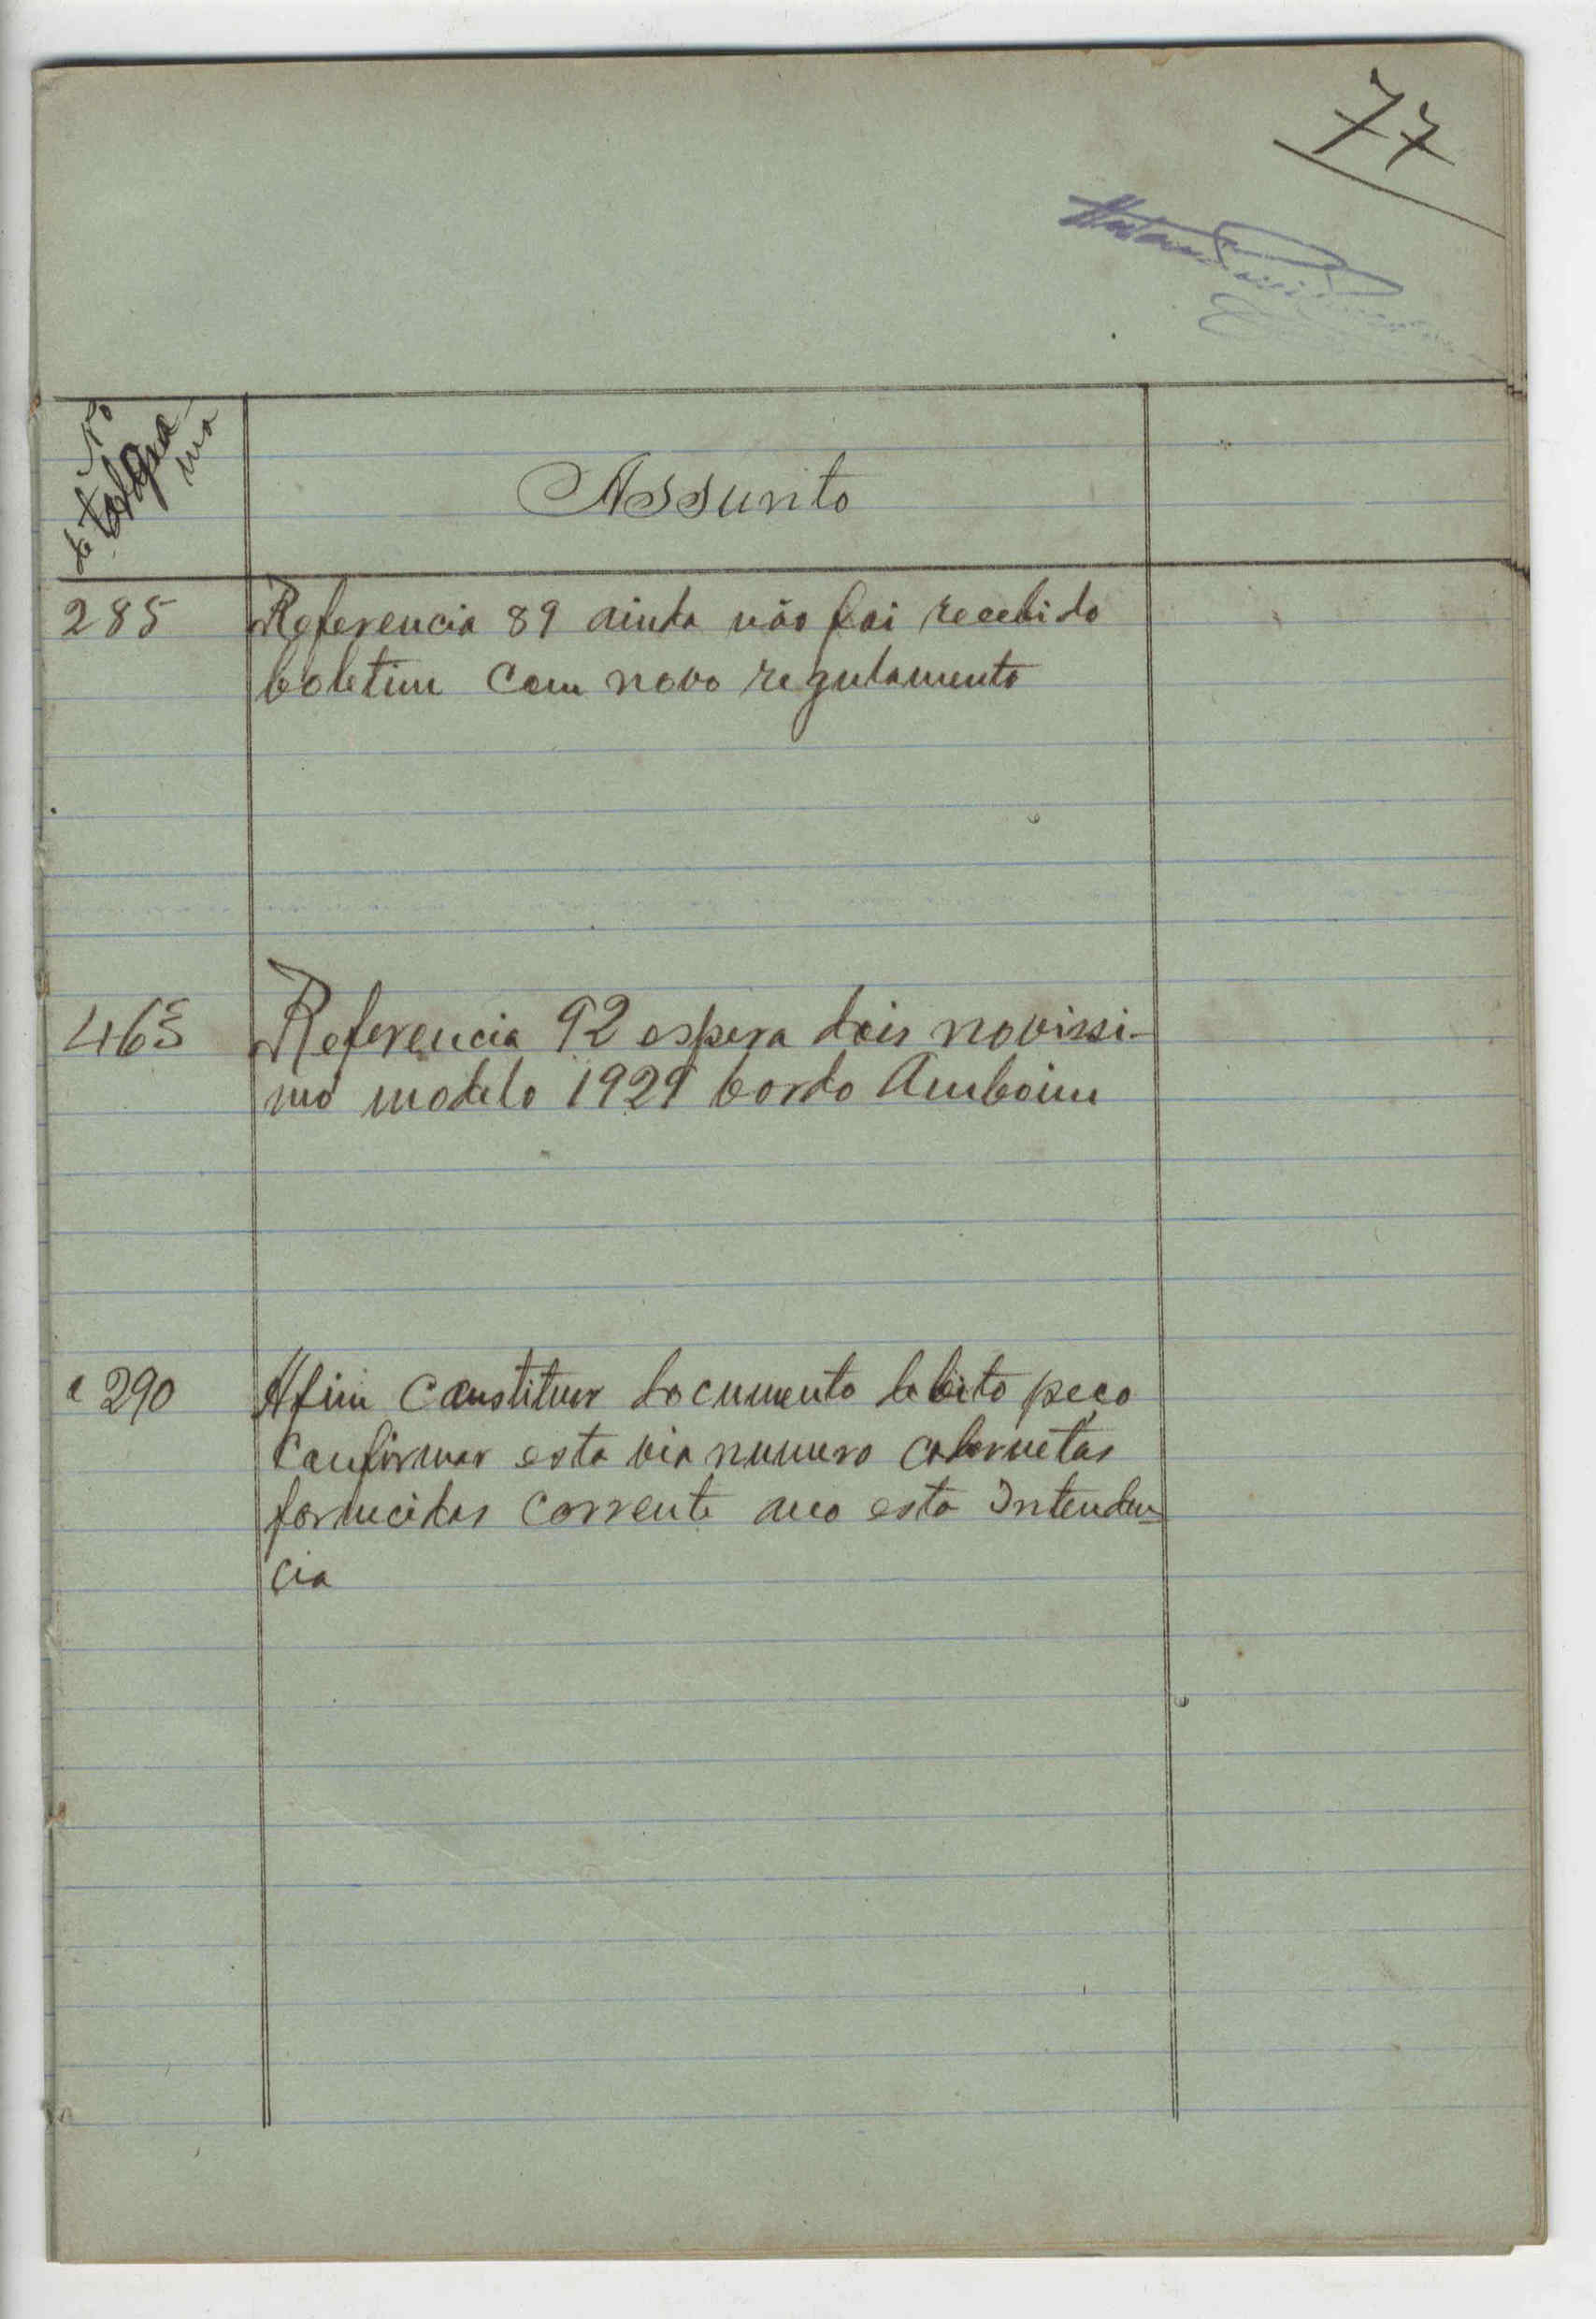 77
No
de telegra
ma
Assunto
285 Referencia 89 ainda não foi recebido
boletim com novo regulamento
463 Referencia 92 espera dois novissi-
mo modelo 1929 bordo Amboim
290 Afim constituir documento debito peço
confirmar esta via numero cadernetas
fornecidas corrente ano esta Intenden=
cia